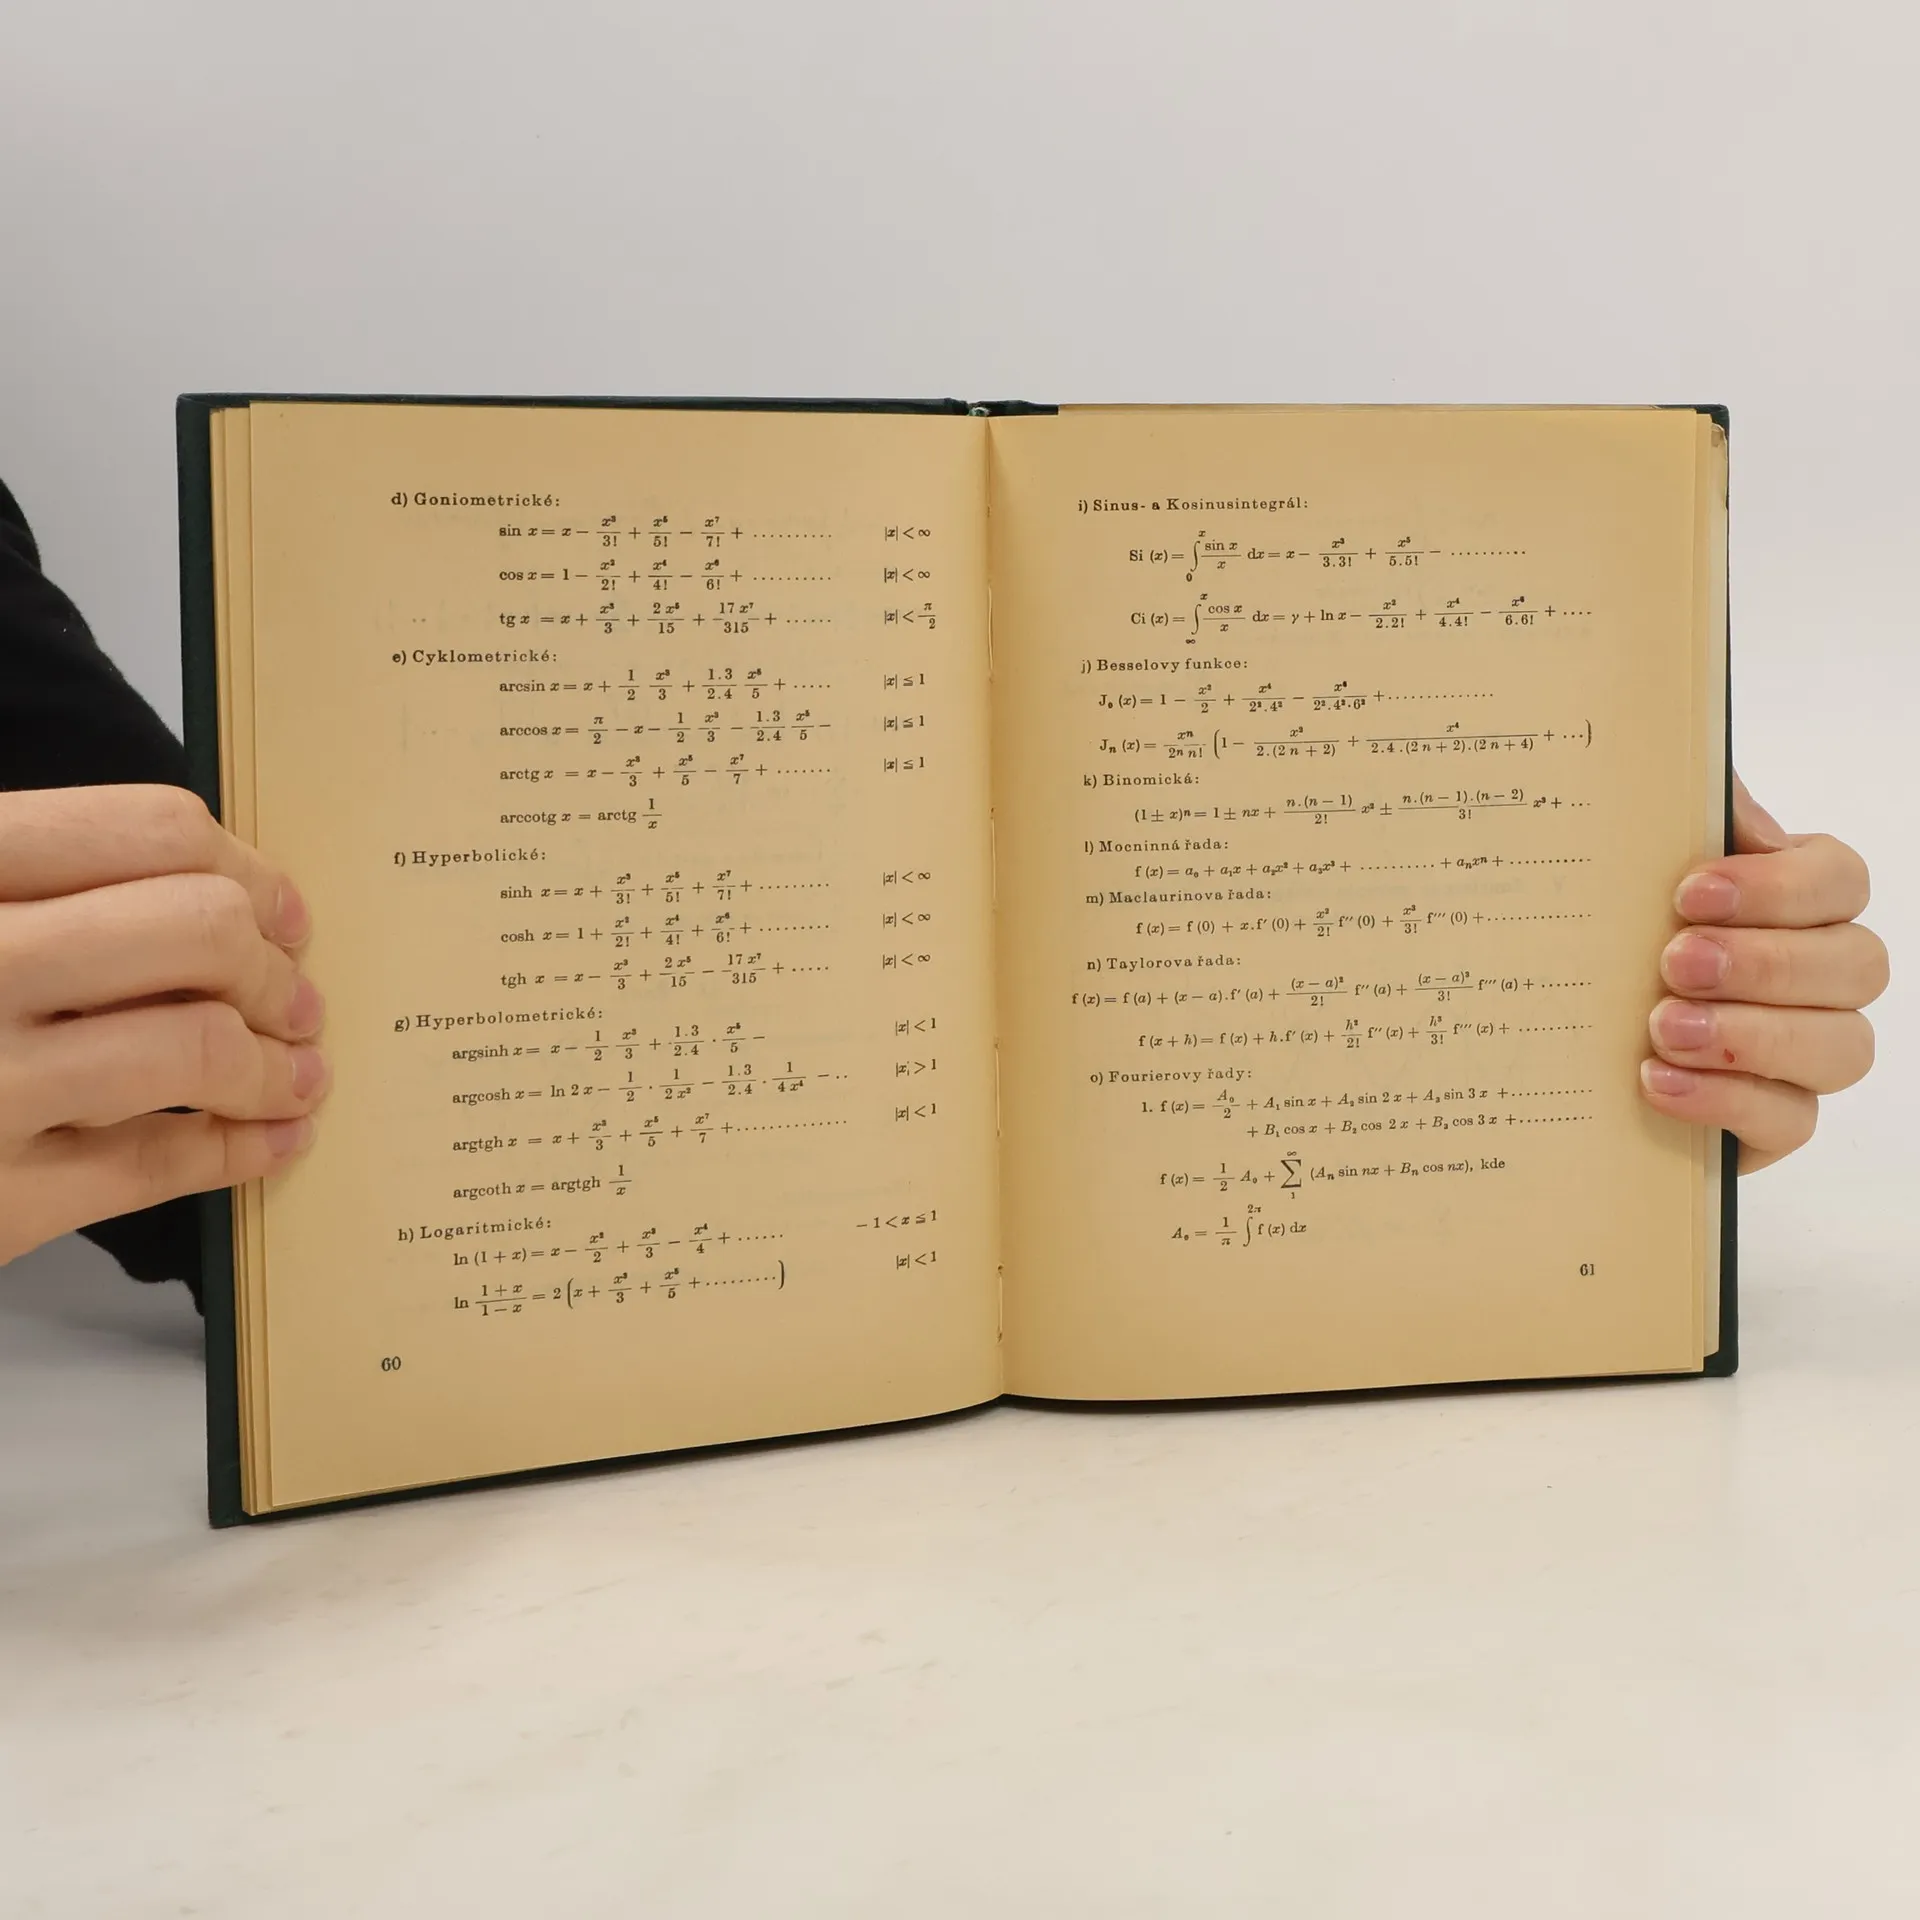 d) Goniometrické:
sin x = x − x³/3! + x⁵/5! − x⁷/7! + .......... |x| < ∞
cos x = 1 − x²/2! + x⁴/4! − x⁶/6! + .......... |x| < ∞
tg x = x + x³/3 + 2 x⁵/15 + 17 x⁷/315 + ...... |x| < π/2
e) Cyklometrické:
arcsin x = x + 1/2 x³/3 + 1.3/2.4 x⁵/5 + ..... |x| ≦ 1
arccos x = π/2 − x − 1/2 x³/3 − 1.3/2.4 x⁵/5 − |x| ≦ 1
arctg x = x − x³/3 + x⁵/5 − x⁷/7 + ....... |x| ≦ 1
arccotg x = arctg 1/x
f) Hyperbolické:
sinh x = x + x³/3! + x⁵/5! + x⁷/7! + ......... |x| < ∞
cosh x = 1 + x²/2! + x⁴/4! + x⁶/6! + ......... |x| < ∞
tgh x = x − x³/3 + 2 x⁵/15 − 17 x⁷/315 + ..... |x| < ∞
g) Hyperbolometrické:
argsinh x = x − 1/2 x³/3 + 1.3/2.4 . x⁵/5 − |x| < 1
argcosh x = ln 2 x − 1/2 . 1/2 x² − 1.3/2.4 . 1/4 x⁴ − .. |x| > 1
argtgh x = x + x³/3 + x⁵/5 + x⁷/7 + .............. |x| < 1
argcoth x = argtgh 1/x
h) Logaritmické:
ln (1 + x) = x − x²/2 + x³/3 − x⁴/4 + ...... − 1 < x ≦ 1
ln 1 + x/1 − x = 2 (x + x³/3 + x⁵/5 + .........) |x| < 1
60
i) Sinus- a Kosinusintegrál:
Si (x) = ∫₀ˣ sin x/x dx = x − x³/3.3! + x⁵/5.5! − ..........
Ci (x) = ∫∞ˣ cos x/x dx = γ + ln x − x²/2.2! + x⁴/4.4! − x⁶/6.6! + ....
j) Besselovy funkce:
J₀ (x) = 1 − x²/2 + x⁴/2².4² − x⁶/2².4².6² + ..............
Jₙ (x) = xⁿ/2ⁿ n! . (1 − x²/2.(2 n + 2) + x⁴/2.4.(2 n + 2).(2 n + 4) + ...)
k) Binomická:
(1 ± x)ⁿ = 1 ± nx + n.(n − 1)/2! x² ± n.(n − 1).(n − 2)/3! x³ + ...
l) Mocninná řada:
f (x) = a₀ + a₁x + a₂x² + a₃x³ + .......... + aₙxⁿ + ...........
m) Maclaurinova řada:
f (x) = f (0) + x.f′ (0) + x²/2! f″ (0) + x³/3! f‴ (0) + ..............
n) Taylorova řada:
f (x) = f (a) + (x − a).f′ (a) + (x − a)²/2! f″ (a) + (x − a)³/3! f‴ (a) + .......
f (x + h) = f (x) + h.f′ (x) + h²/2! f″ (x) + h³/3! f‴ (x) + ..........
o) Fourierovy řady:
1. f (x) = A₀/2 + A₁ sin x + A₂ sin 2 x + A₃ sin 3 x + ...........
+ B₁ cos x + B₂ cos 2 x + B₃ cos 3 x + ..........
f (x) = 1/2 A₀ + ∑₁^∞ (Aₙ sin nx + Bₙ cos nx), kde
A₀ = 1/π ∫^2π f (x) dx
61